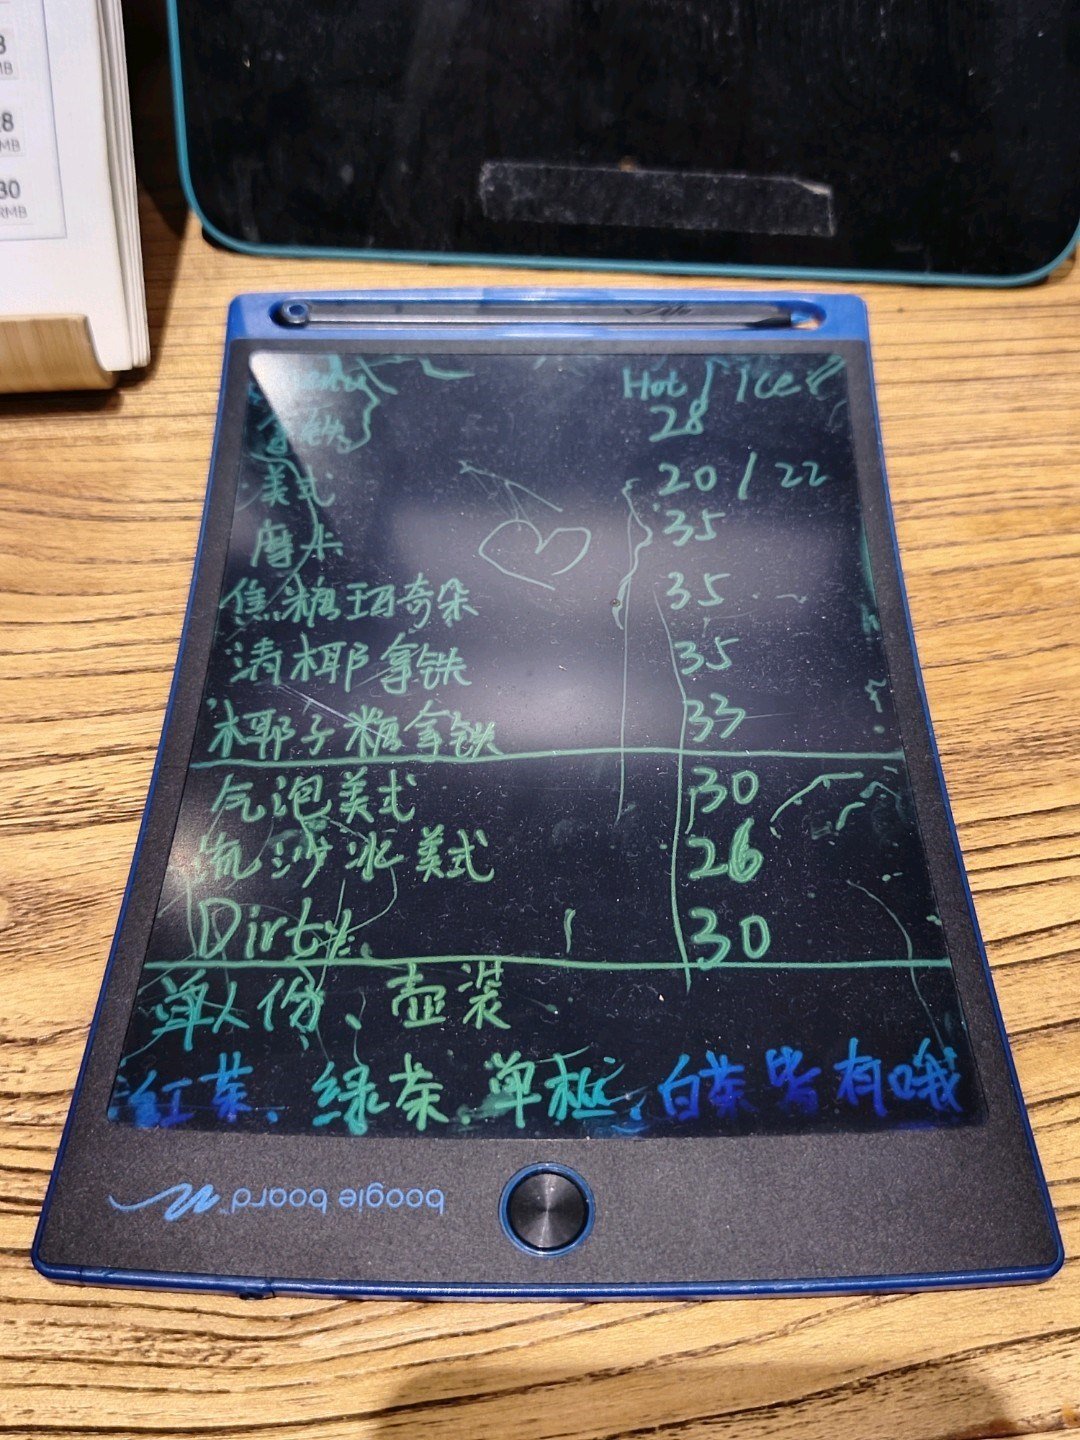 8
MB
8
MB
30
RMB
Hot / Ice
拿铁 28
美式 20 / 22
摩卡 35
焦糖玛奇朵 35
清椰拿铁 35
椰子糖拿铁 33
气泡美式 30
沙冰美式 26
Dirty 30
单人份、壶装
红茶、绿茶、单枞、白茶皆有哦
boogie board